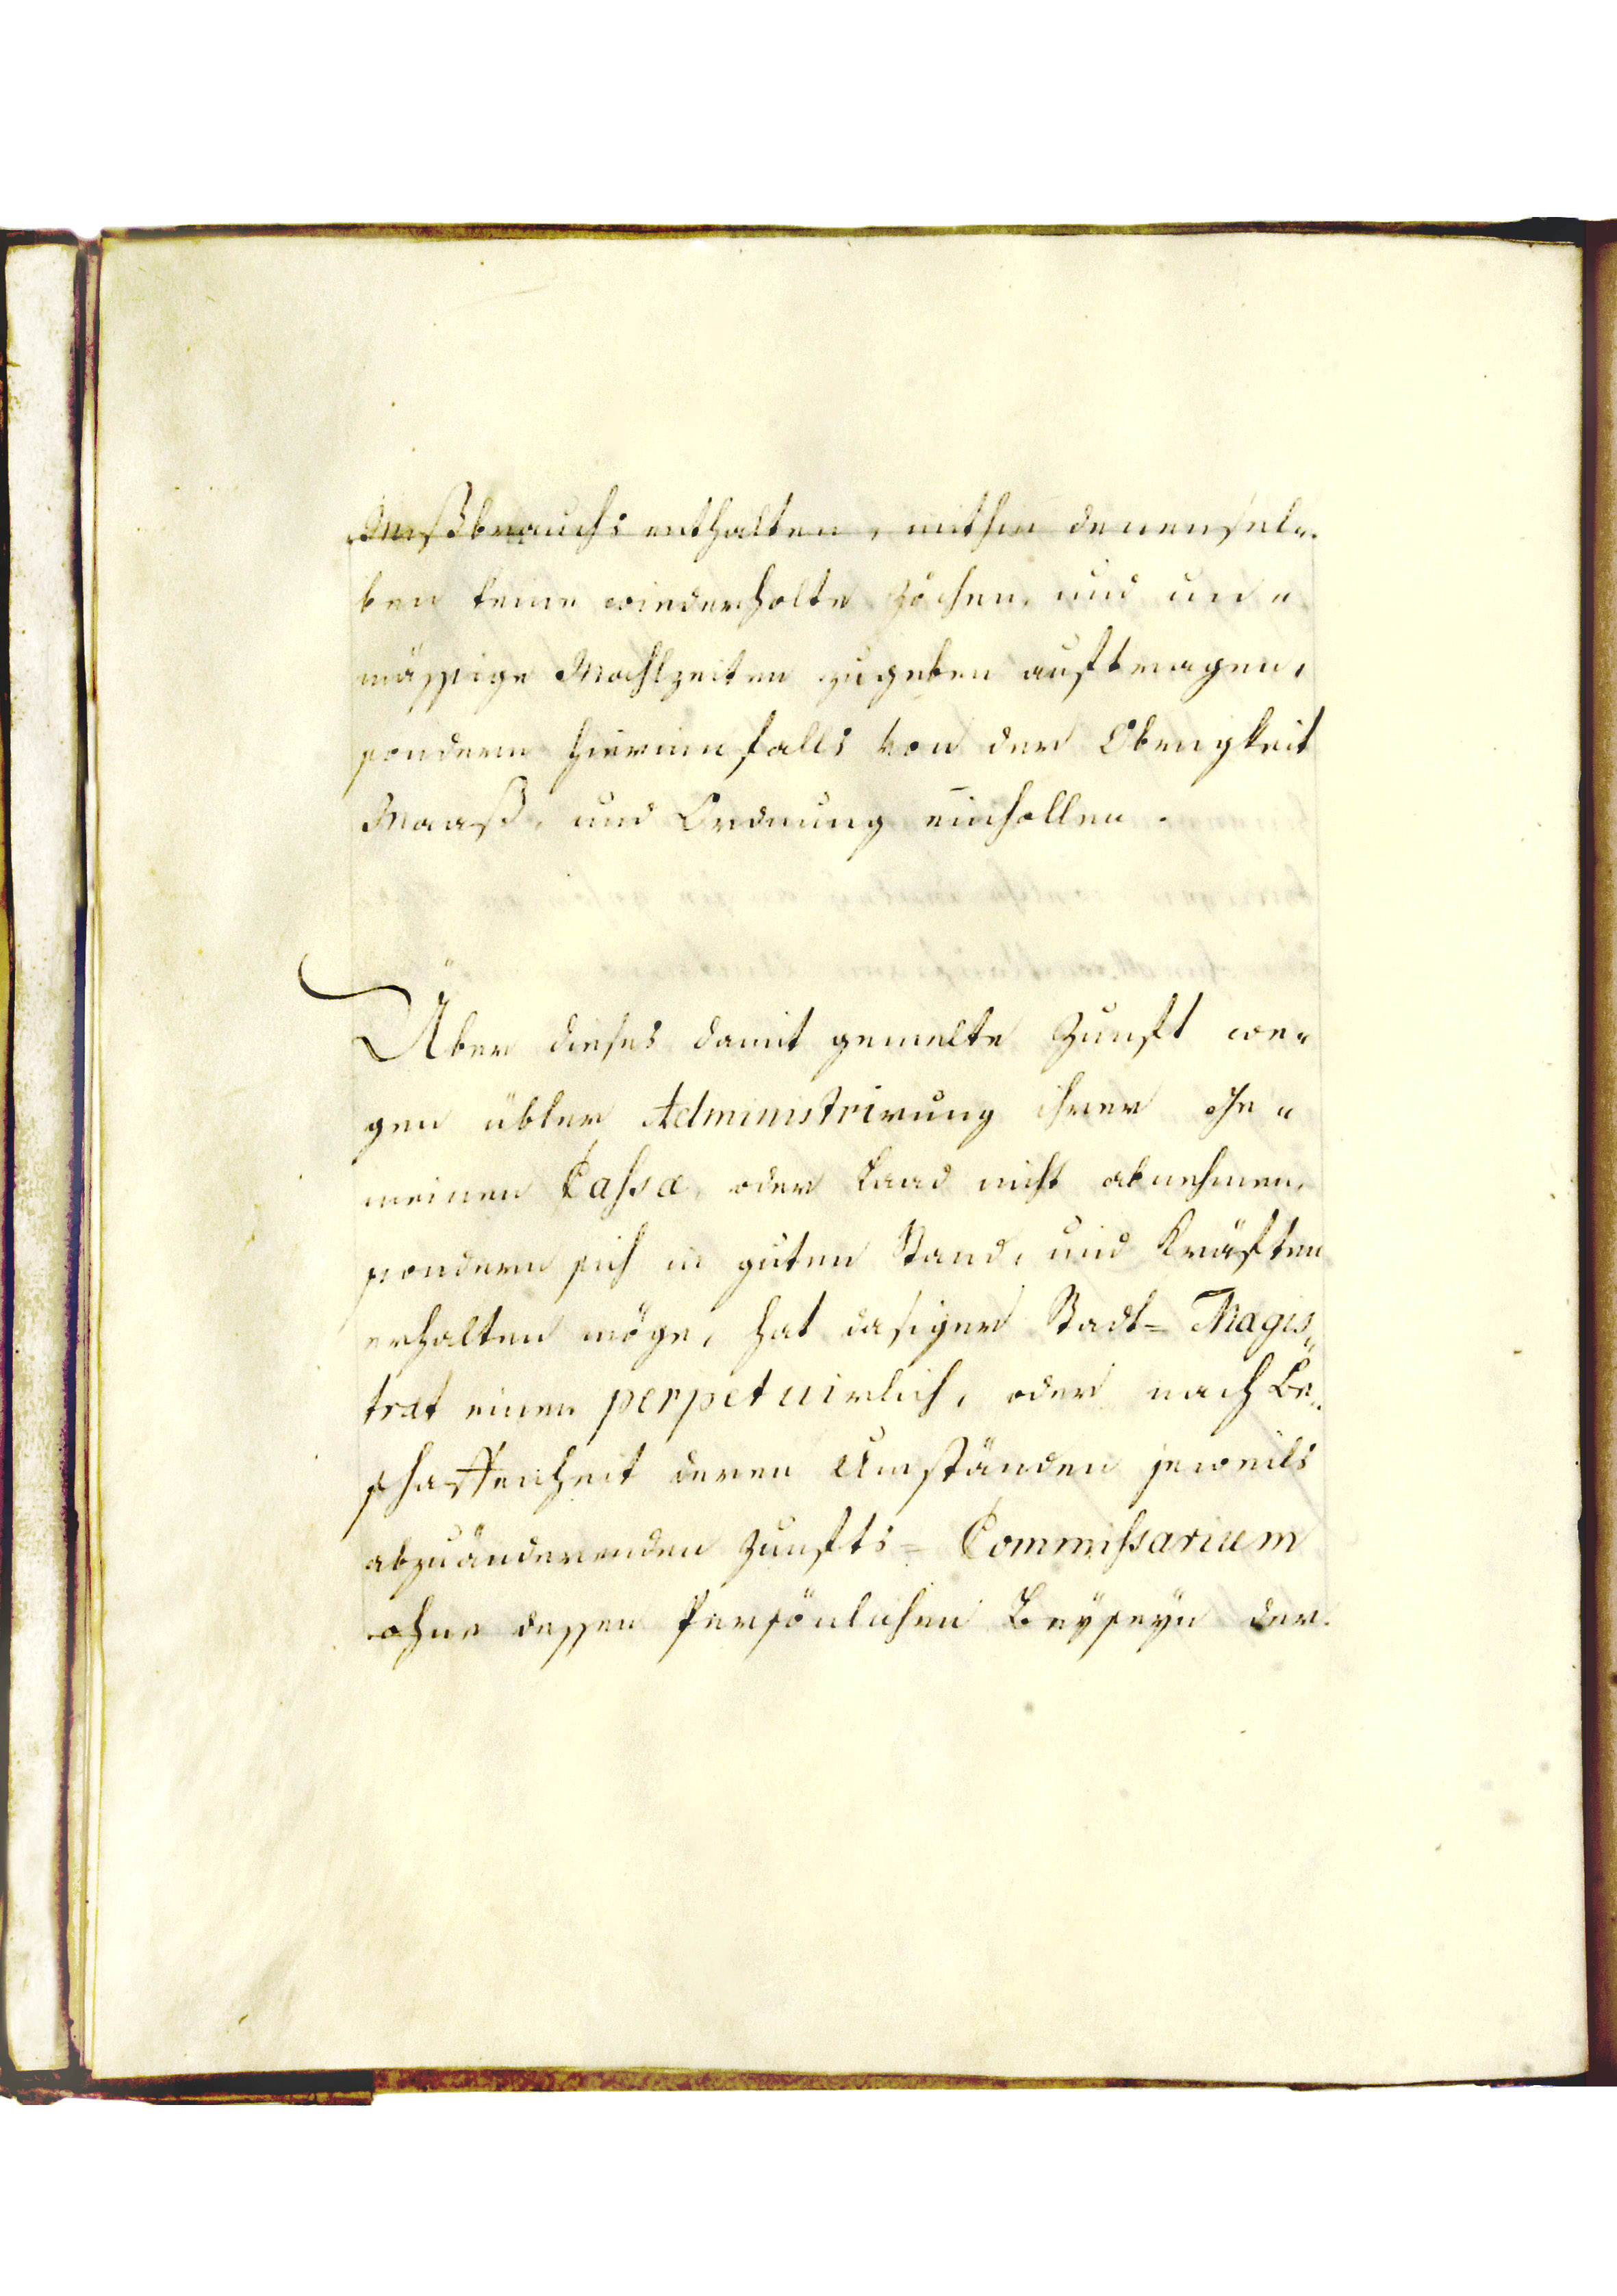 Mißbrauchs enthalten, mithin denensel„
ben keine wiederholte Zöchen, und un„
mässige Mahlzeiten zugeben auftragen,
sondern hierinnfalls von der Obrigkeit
Maaß, und Ordnung einhollen.
Über dieses damit gemelte Zunft we„
gen übler Administrirung ihrer Ge„
meinen Cassa, oder Laad nicht abnehmen,
sondern sich in guten Stand, und Kräften
erhalten möge, hat dasiger Stadt= Magis„
trat einen perpetuirlich, oder nach Be„
schaffenheit deren Umständen jeweils
abzuänderenden Zunfts= Commissarium
ohne dessen Persönlichen Beÿseÿn der